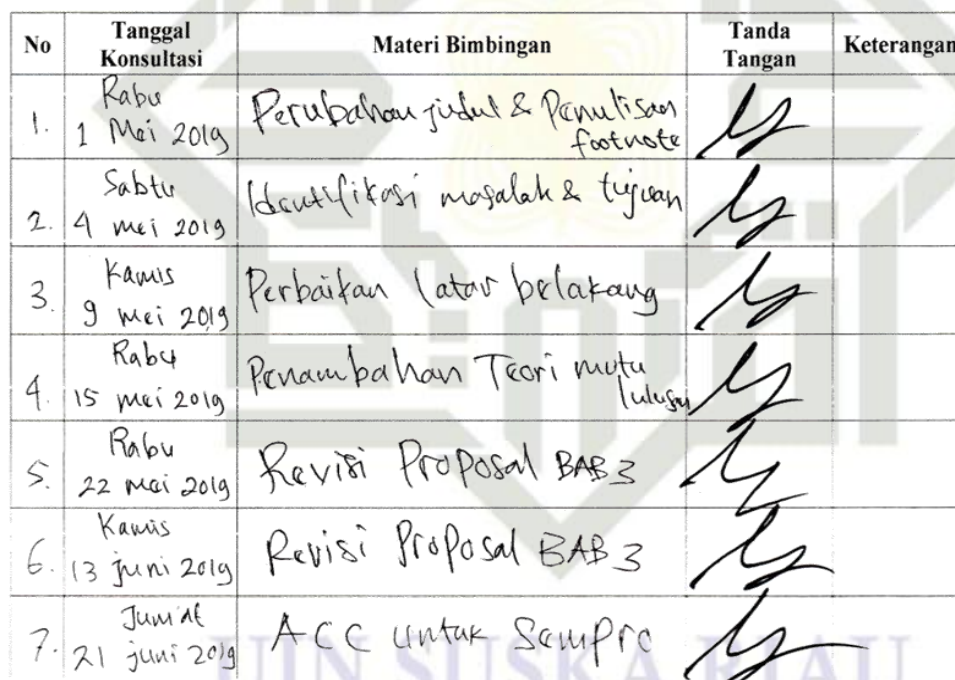 No Tanggal Konsultasi Materi Bimbingan Tanda Tangan Keterangan
1. Rabu 1 Mei 2019 Perubahan judul & Penulisan footnote
2. Sabtu 4 mei 2019 Identifikasi masalah & tujuan
3. Kamis 9 mei 2019 Perbaikan latar belakang
4. Rabu 15 mei 2019 Penambahan Teori mutu lulusan
5. Rabu 22 mei 2019 Revisi Proposal BAB 3
6. Kamis 13 juni 2019 Revisi Proposal BAB 3
7. Jum'at 21 juni 2019 ACC untuk Sempro
UIN SUSKA RIAU